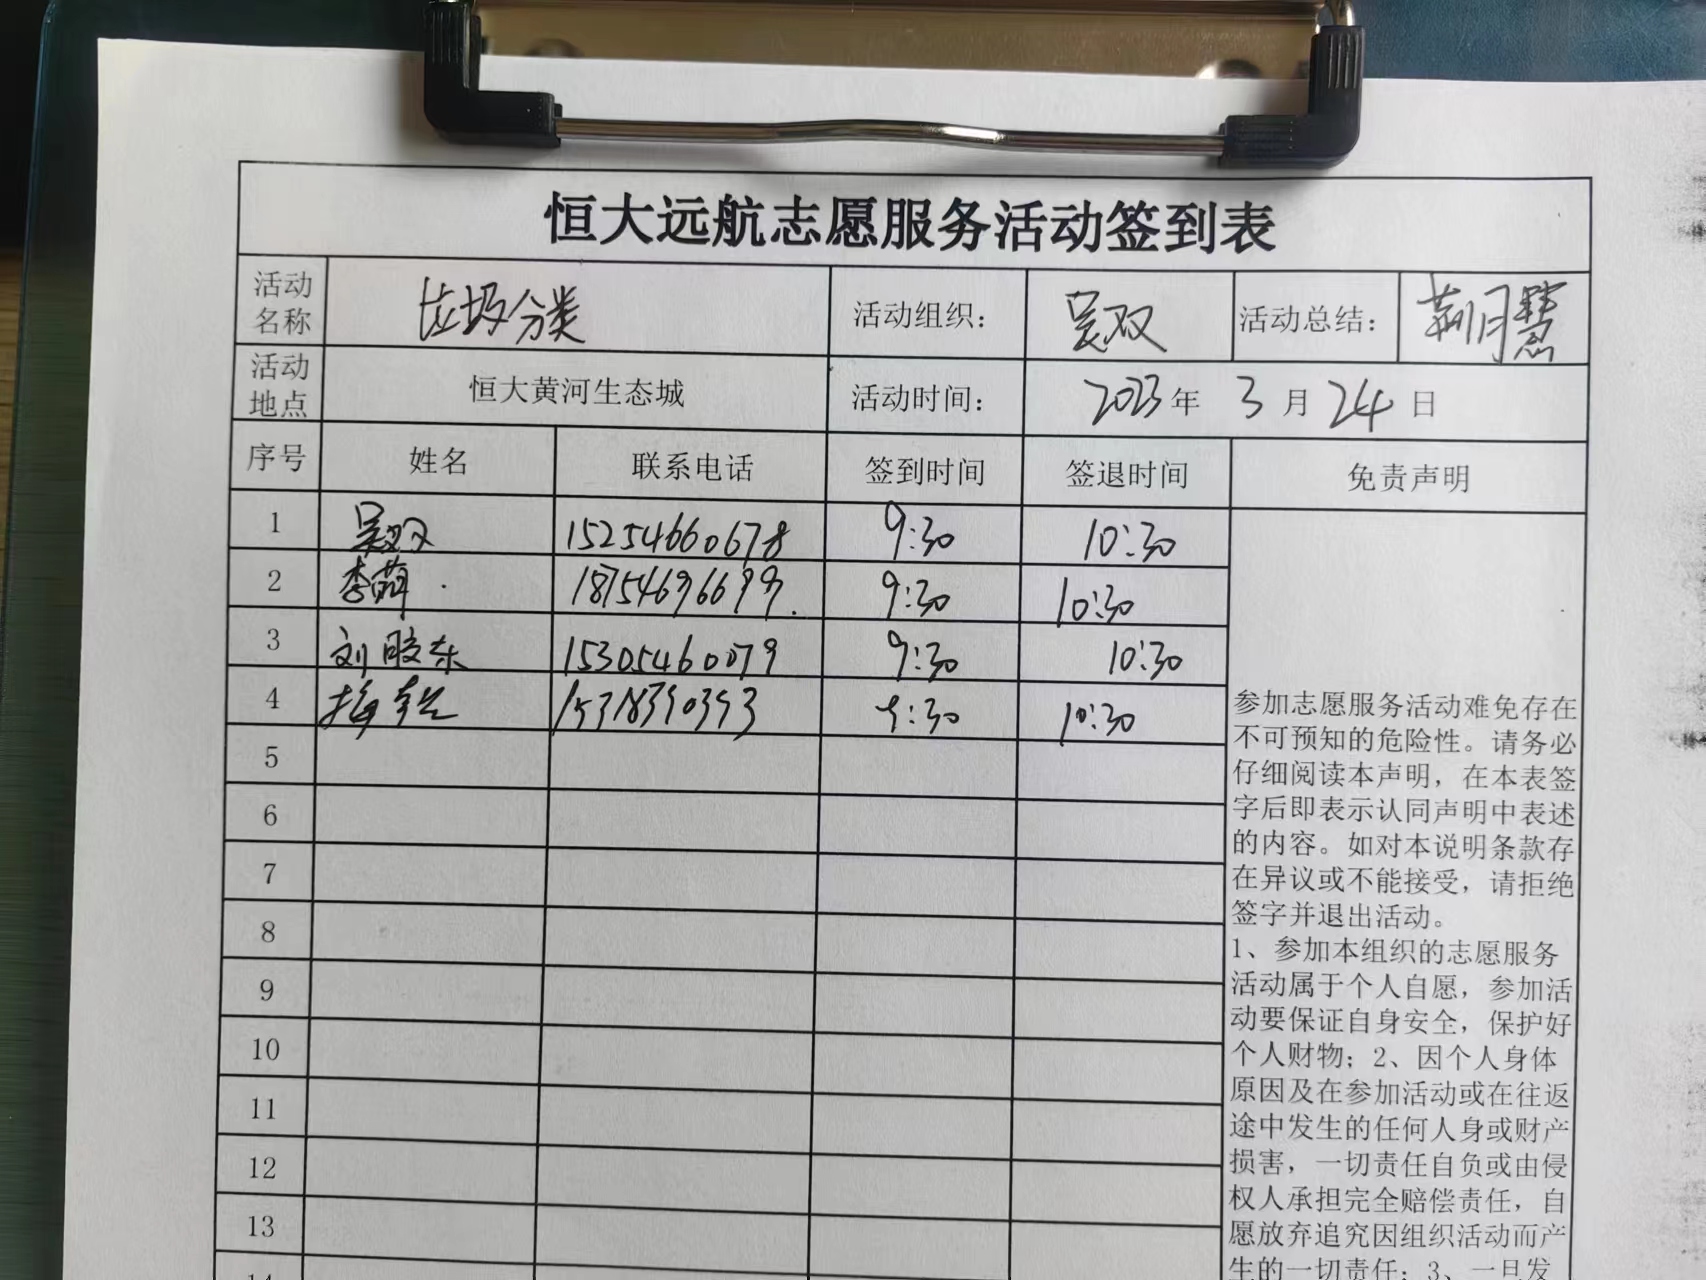 恒大远航志愿服务活动签到表
活动名称 垃圾分类 活动组织： 吴双 活动总结： 荆月慧
活动地点 恒大黄河生态城 活动时间： 2023年 3月24日
序号 姓名 联系电话 签到时间 签退时间 免责声明
1 吴双 15254660678 9:30 10:30
2 李萌 18754696699 9:30 10:30
3 刘胶东 15305460079 9:30 10:30
4 15318390393 9:30 10:30
5
6
7
8
9
10
11
12
13
14
参加志愿服务活动难免存在
不可预知的危险性。请务必
仔细阅读本声明，在本表签
字后即表示认同声明中表述
的内容。如对本说明条款存
在异议或不能接受，请拒绝
签字并退出活动。
1、参加本组织的志愿服务
活动属于个人自愿，参加活
动要保证自身安全，保护好
个人财物；2、因个人身体
原因及在参加活动或在往返
途中发生的任何人身或财产
损害，一切责任自负或由侵
权人承担完全赔偿责任，自
愿放弃追究因组织活动而产
生的一切责任；3、一旦发